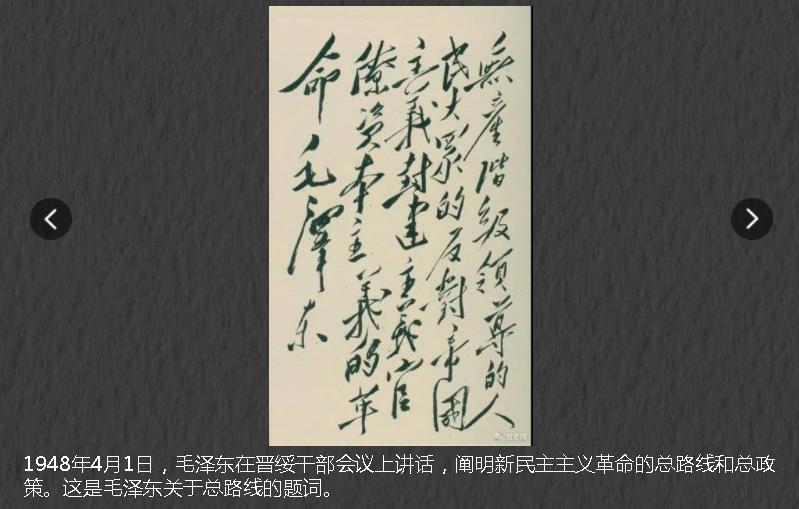 無產階級領導的人
民大眾的反對帝國
主義封建主義官
僚資本主義的革
命毛澤东
1948年4月1日，毛泽东在晋绥干部会议上讲话，阐明新民主主义革命的总路线和总政
策。这是毛泽东关于总路线的题词。